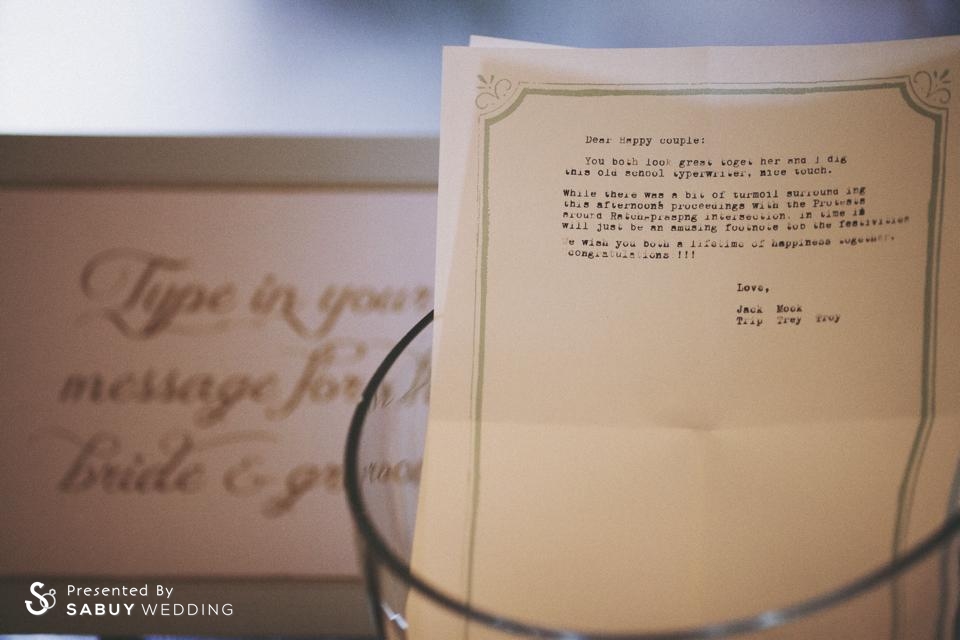 Type in your
message for
bride &
Dear Happy couple:
You both look great toget her and i dig
this old school typerwriter, nice touch.
While there was a bit of turmoil surround ing
this afternoon's proceedings with the Protests
around Ratch-praspng intersection, in time it
will just be an amusing footnote top the festivities
We wish you both a lifetime of happiness together.
congratulations !!!
Love,
Jack Mook
Trip Trey Troy
Presented By
SABUY WEDDING